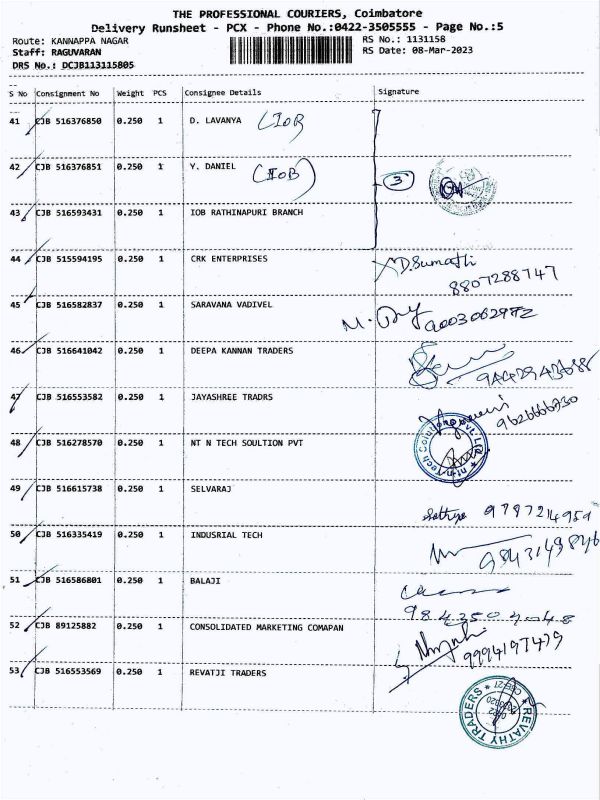 THE PROFESSIONAL COURIERS, Coimbatore
Delivery Runsheet - PCX - Phone No.:0422-3505555 - Page No.:5
Route: KANNAPPA NAGAR RS No.: 1131158
Staff: RAGUVARAN RS Date: 08-Mar-2023
DRS No.: DCJB113115805
S No Consignment No Weight PCS Consignee Details Signature
41 CJB 516376850 0.250 1 D. LAVANYA (IOB
42 CJB 516376851 0.250 1 Y. DANIEL (IOB) 3
43 CJB 516593431 0.250 1 IOB RATHINAPURI BRANCH
44 CJB 515594195 0.250 1 CRK ENTERPRISES D.Sumathi
8807288747
45 CJB 516582837 0.250 1 SARAVANA VADIVEL
46 CJB 516641042 0.250 1 DEEPA KANNAN TRADERS
47 CJB 516553582 0.250 1 JAYASHREE TRADRS
48 CJB 516278570 0.250 1 NT N TECH SOULTION PVT
49 CJB 516615738 0.250 1 SELVARAJ
9787214959
50 CJB 516335419 0.250 1 INDUSRIAL TECH
9843149846
51 CJB 516586801 0.250 1 BALAJI
52 CJB 89125882 0.250 1 CONSOLIDATED MARKETING COMAPAN
9994197479
53 CJB 516553569 0.250 1 REVATJI TRADERS
REVATHY TRADERS